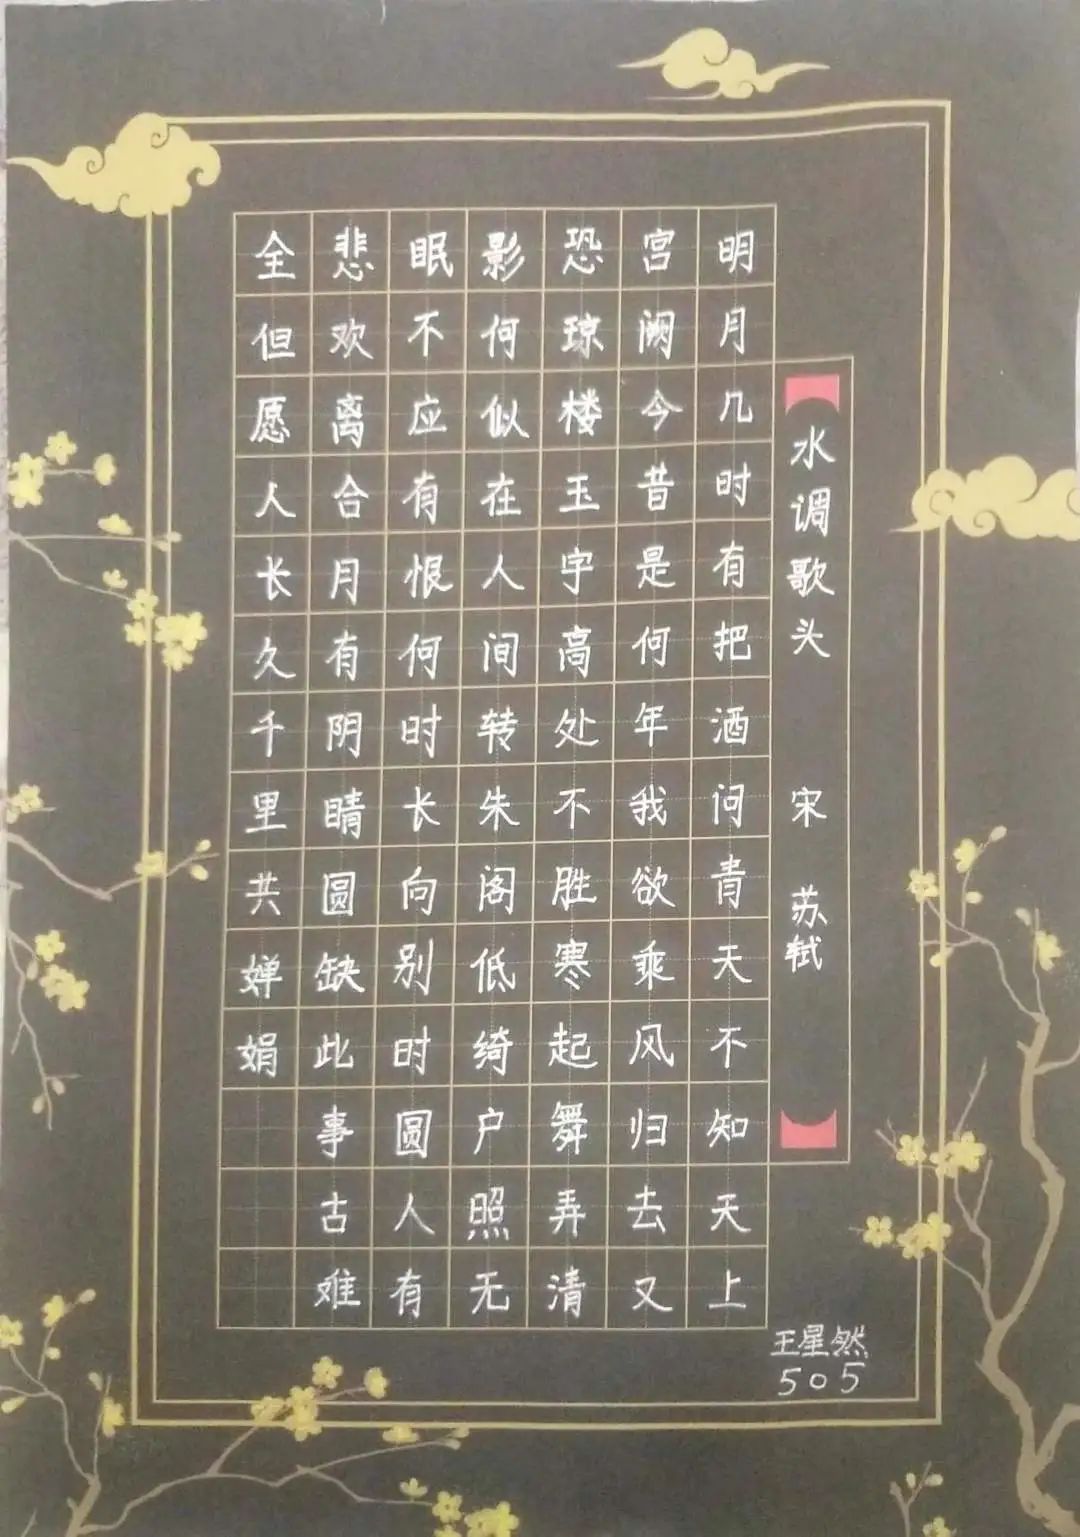 水调歌头 宋 苏轼
明月几时有把酒问青天不知天上
宫阙今昔是何年我欲乘风归去又
恐琼楼玉宇高处不胜寒起舞弄清
影何似在人间转朱阁低绮户照无
眠不应有恨何时长向别时圆人有
悲欢离合月有阴晴圆缺此事古难
全但愿人长久千里共婵娟
王星然
505